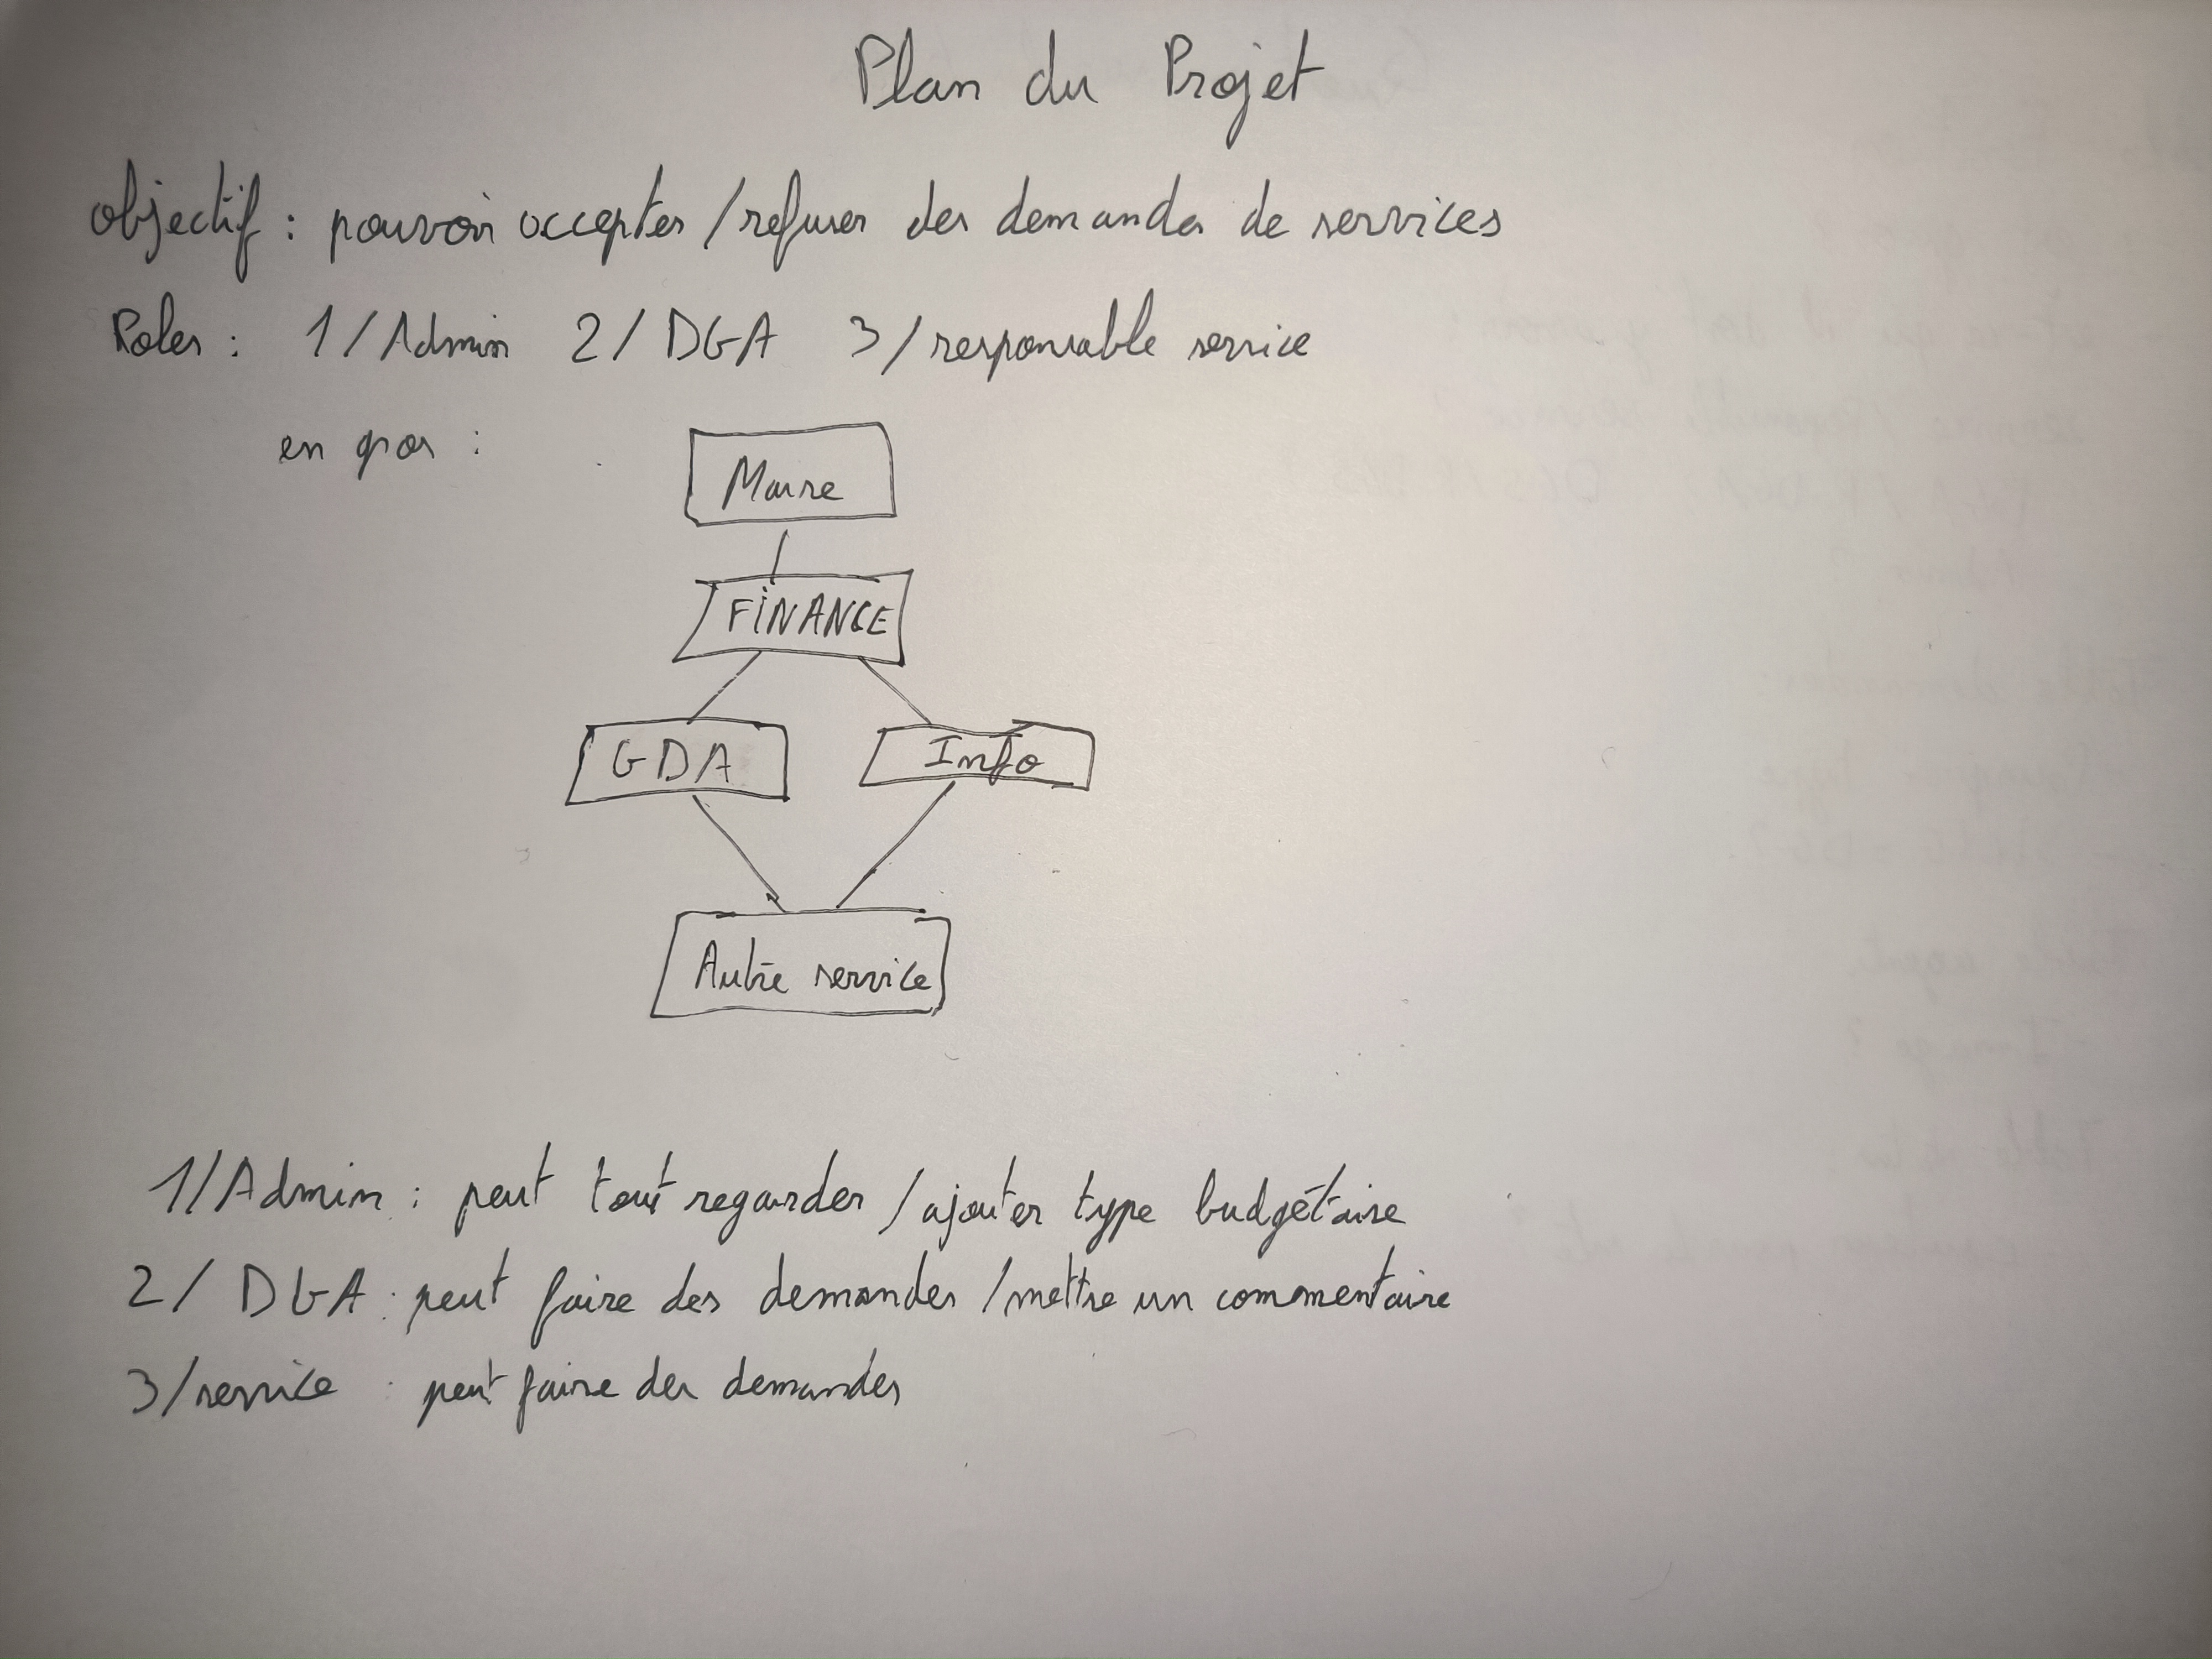 Plan du Projet
objectif : pouvoir accepter / refuser des demandes de services
Roles : 1/Admin 2/ DGA 3/ responsable service
en gros :
Maire
FINANCE
GDA Info
Autre service
1/Admin : peut tout regarder / ajouter type budgétaire
2/ DGA : peut faire des demandes / mettre un commentaire
3/service : peut faire des demandes